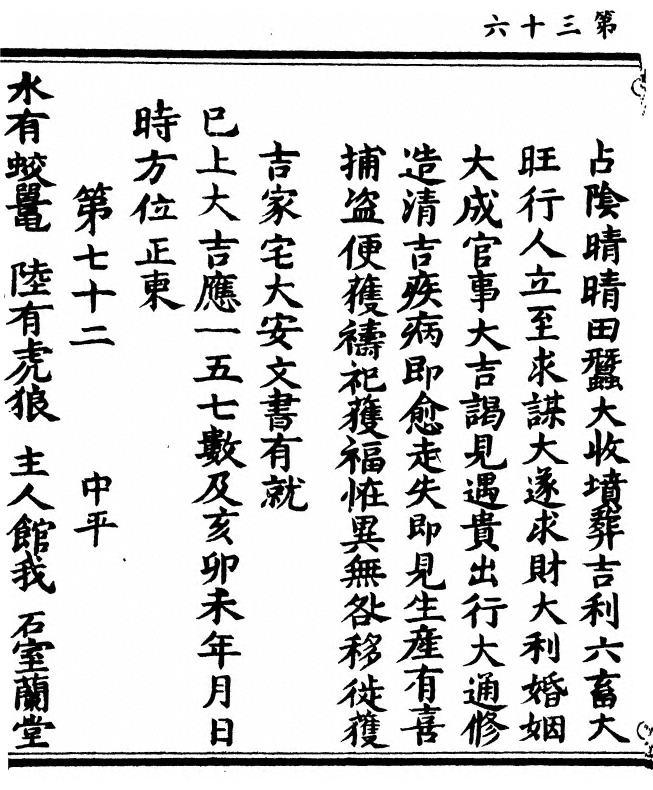 第三十六
占陰晴晴田蠶大收墳葬吉利六畜大
旺行人立至求謀大遂求財大利婚姻
大成官事大吉謁見遇貴出行大通修
造清吉疾病即愈走失即見生産有喜
捕盗便獲禱祀獲福恠異無咎移徙獲
吉家宅大安文書有就
已上大吉應一五七數及亥卯未年月日
時方位正東
第七十二 中平
水有蛟鼉 陸有虎狼 主人館我 石室蘭堂